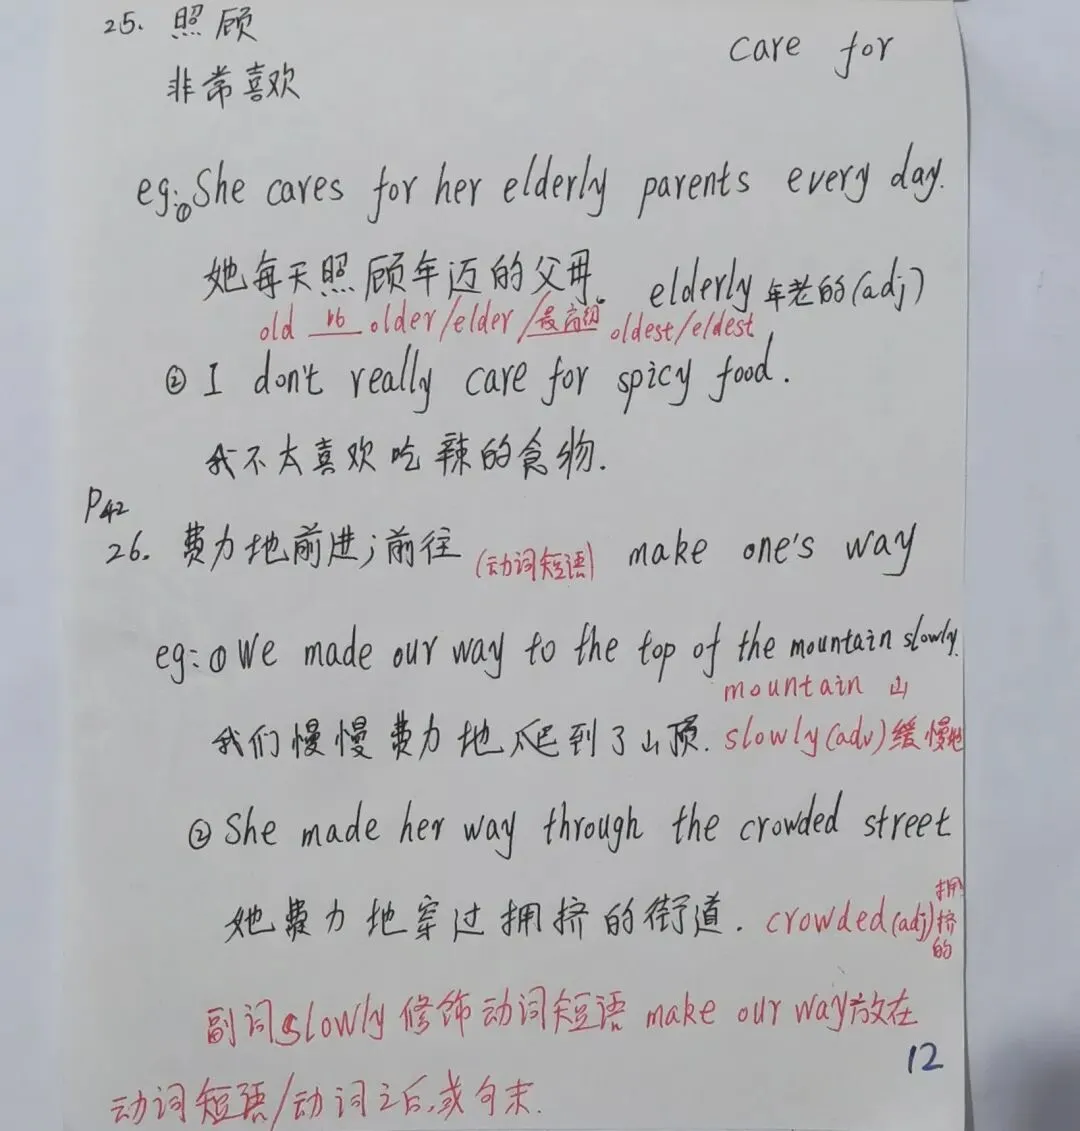 25. 照顾 care for
非常喜欢
eg:①She cares for her elderly parents every day.
她每天照顾年迈的父母。 elderly 年老的(adj)
old 比 older/elder/最高级 oldest/eldest
② I don't really care for spicy food.
我不太喜欢吃辣的食物.
P42
26. 费力地前进;前往 (动词短语) make one's way
eg:①We made our way to the top of the mountain slowly.
mountain 山
我们慢慢费力地爬到了山顶. slowly(adv)缓慢地
② She made her way through the crowded street
她费力地穿过拥挤的街道. crowded(adj)拥挤的
副词slowly修饰动词短语 make our way放在
12
动词短语/动词之后,或句末.